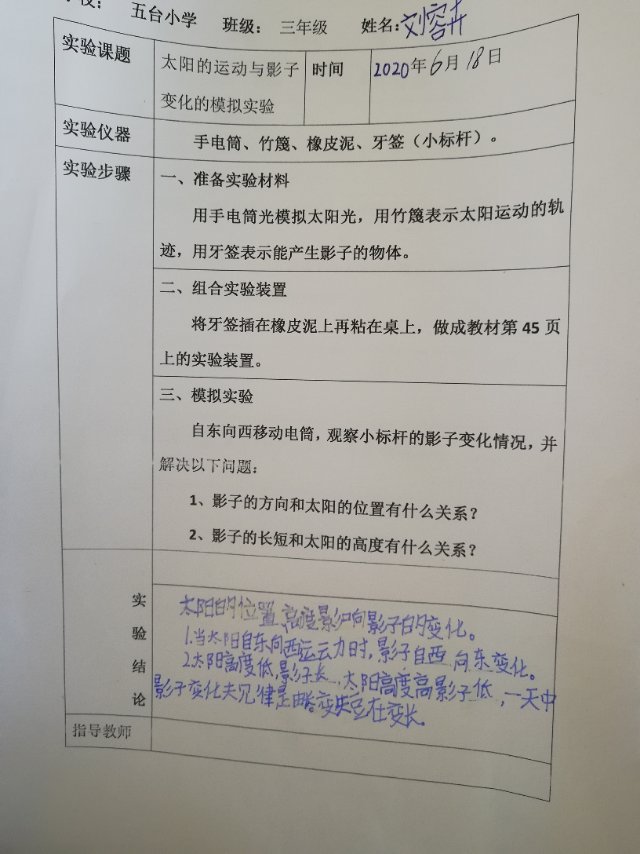 校： 五台小学 班级： 三年级 姓名：刘容卉
实验课题 太阳的运动与影子 时间 2020年6月18日
变化的模拟实验
实验仪器 手电筒、竹篾、橡皮泥、牙签（小标杆）。
实验步骤 一、准备实验材料
用手电筒光模拟太阳光，用竹篾表示太阳运动的轨
迹，用牙签表示能产生影子的物体。
二、组合实验装置
将牙签插在橡皮泥上再粘在桌上，做成教材第 45 页
上的实验装置。
三、模拟实验
自东向西移动电筒，观察小标杆的影子变化情况，并
解决以下问题：
1、影子的方向和太阳的位置有什么关系？
2、影子的长短和太阳的高度有什么关系？
实验结论
太阳的位置高度影响影子的变化。
1.当太阳自东向西运动时，影子自西向东变化。
2.太阳高度低，影子长，太阳高度高影子低，一天中
影子变化夫见律是由长变短在变长。
指导教师